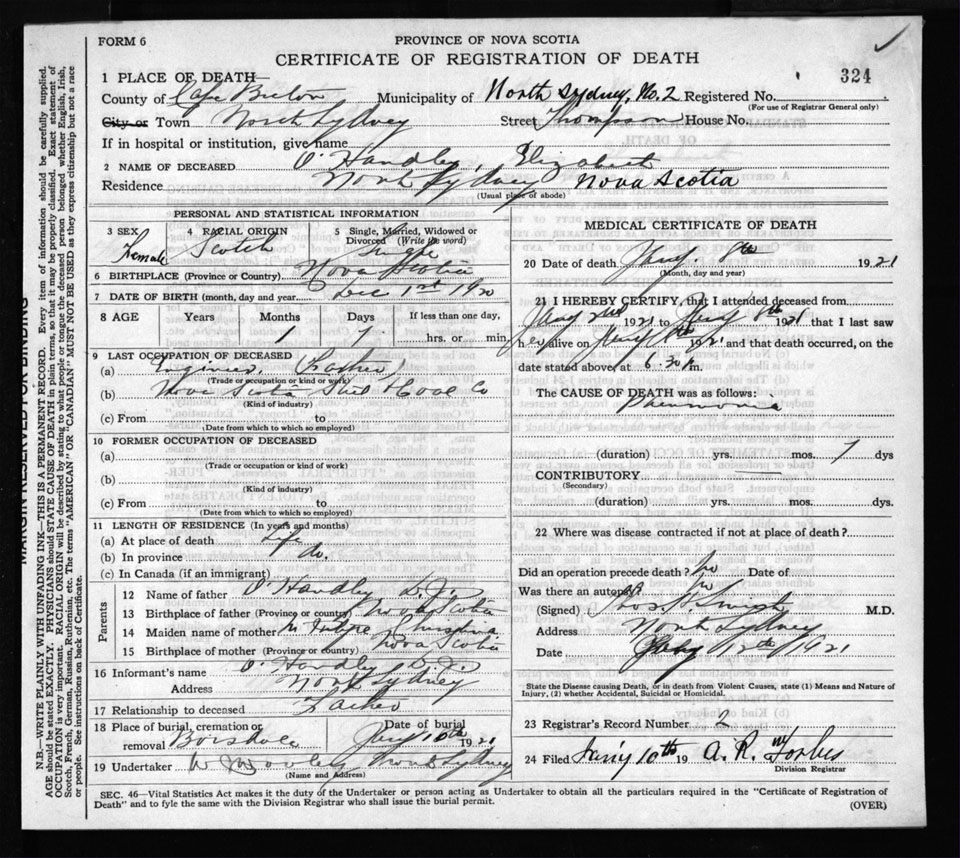 FORM 6
PROVINCE OF NOVA SCOTIA
CERTIFICATE OF REGISTRATION OF DEATH
324
1 PLACE OF DEATH—
County of Cape Breton Municipality of North Sydney, No. 2 Registered No.
(For use of Registrar General only)
City or Town North Sydney Street Thompson House No.
If in hospital or institution, give name
2 NAME OF DECEASED O'Handley, Elizabeth
Residence North Sydney Nova Scotia
(Usual place of abode)
PERSONAL AND STATISTICAL INFORMATION
3 SEX Female
4 RACIAL ORIGIN Scotch
5 Single, Married, Widowed or Divorced (Write the word) Single
6 BIRTHPLACE (Province or Country) Nova Scotia
7 DATE OF BIRTH (month, day and year) Dec 1st 1920
8 AGE Years Months Days If less than one day,
1 7 hrs. or min.
9 LAST OCCUPATION OF DECEASED
(a) Engineer, (Father)
(Trade or occupation or kind of work)
(b) Nova Scotia Steel & Coal Co
(Kind of industry)
(c) From to
(Date from which to which so employed)
10 FORMER OCCUPATION OF DECEASED
(a)
(Trade or occupation or kind of work)
(b)
(Kind of industry)
(c) From to
(Date from which to which so employed)
11 LENGTH OF RESIDENCE (In years and months)
(a) At place of death Life
(b) In province do.
(c) In Canada (if an immigrant)
Parents
12 Name of father O'Handley D. J.
13 Birthplace of father (Province or country) Nova Scotia
14 Maiden name of mother Christina
15 Birthplace of mother (Province or country) Nova Scotia
16 Informant's name O'Handley D. J.
Address North Sydney
17 Relationship to deceased Father
18 Place of burial, cremation or removal Boisdale
Date of burial Jany 10th 1921
19 Undertaker North Sydney
(Name and Address)
MEDICAL CERTIFICATE OF DEATH
20 Date of death Jany. 8th 1921
(Month, day and year)
21 I HEREBY CERTIFY, that I attended deceased from
Jany 2nd 1921 to Jany 8th 1921 that I last saw
her alive on Jany 1921 and that death occurred, on the
date stated above, at 6.30 m.
The CAUSE OF DEATH was as follows:
Pneumonia
(duration) yrs. mos. 7 dys
CONTRIBUTORY
(Secondary)
(duration) yrs. mos. dys.
22 Where was disease contracted if not at place of death?
Did an operation precede death? no
Was there an autopsy? no
(Signed) M.D.
Address North Sydney
Date 1921
State the Disease causing Death, or in death from Violent Causes, state (1) Means and Nature of Injury, (2) whether Accidental, Suicidal or Homicidal.
23 Registrar's Record Number 2
24 Filed Jan'y 10th 19 A. R. Forbes
Division Registrar
SEC. 46—Vital Statistics Act makes it the duty of the Undertaker or person acting as Undertaker to obtain all the particulars required in the "Certificate of Registration of
Death" and to fyle the same with the Division Registrar who shall issue the burial permit.
(OVER)
MARGIN RESERVED FOR BINDING
N.B.—WRITE PLAINLY WITH UNFADING INK—THIS IS A PERMANENT RECORD. Every item of information should be carefully supplied.
AGE should be stated EXACTLY. PHYSICIANS should STATE CAUSE OF DEATH in plain terms, so that it may be properly classified. Exact statement of
OCCUPATION is very important. RACIAL ORIGIN will be described by stating to what people or tongue the deceased person belonged, whether English, Irish,
Scotch, French, German, Russian, Ruthenian, etc. The terms "AMERICAN" OR "CANADIAN" MUST NOT BE USED as they express citizenship but not a race
or people. See instructions on back of Certificate.